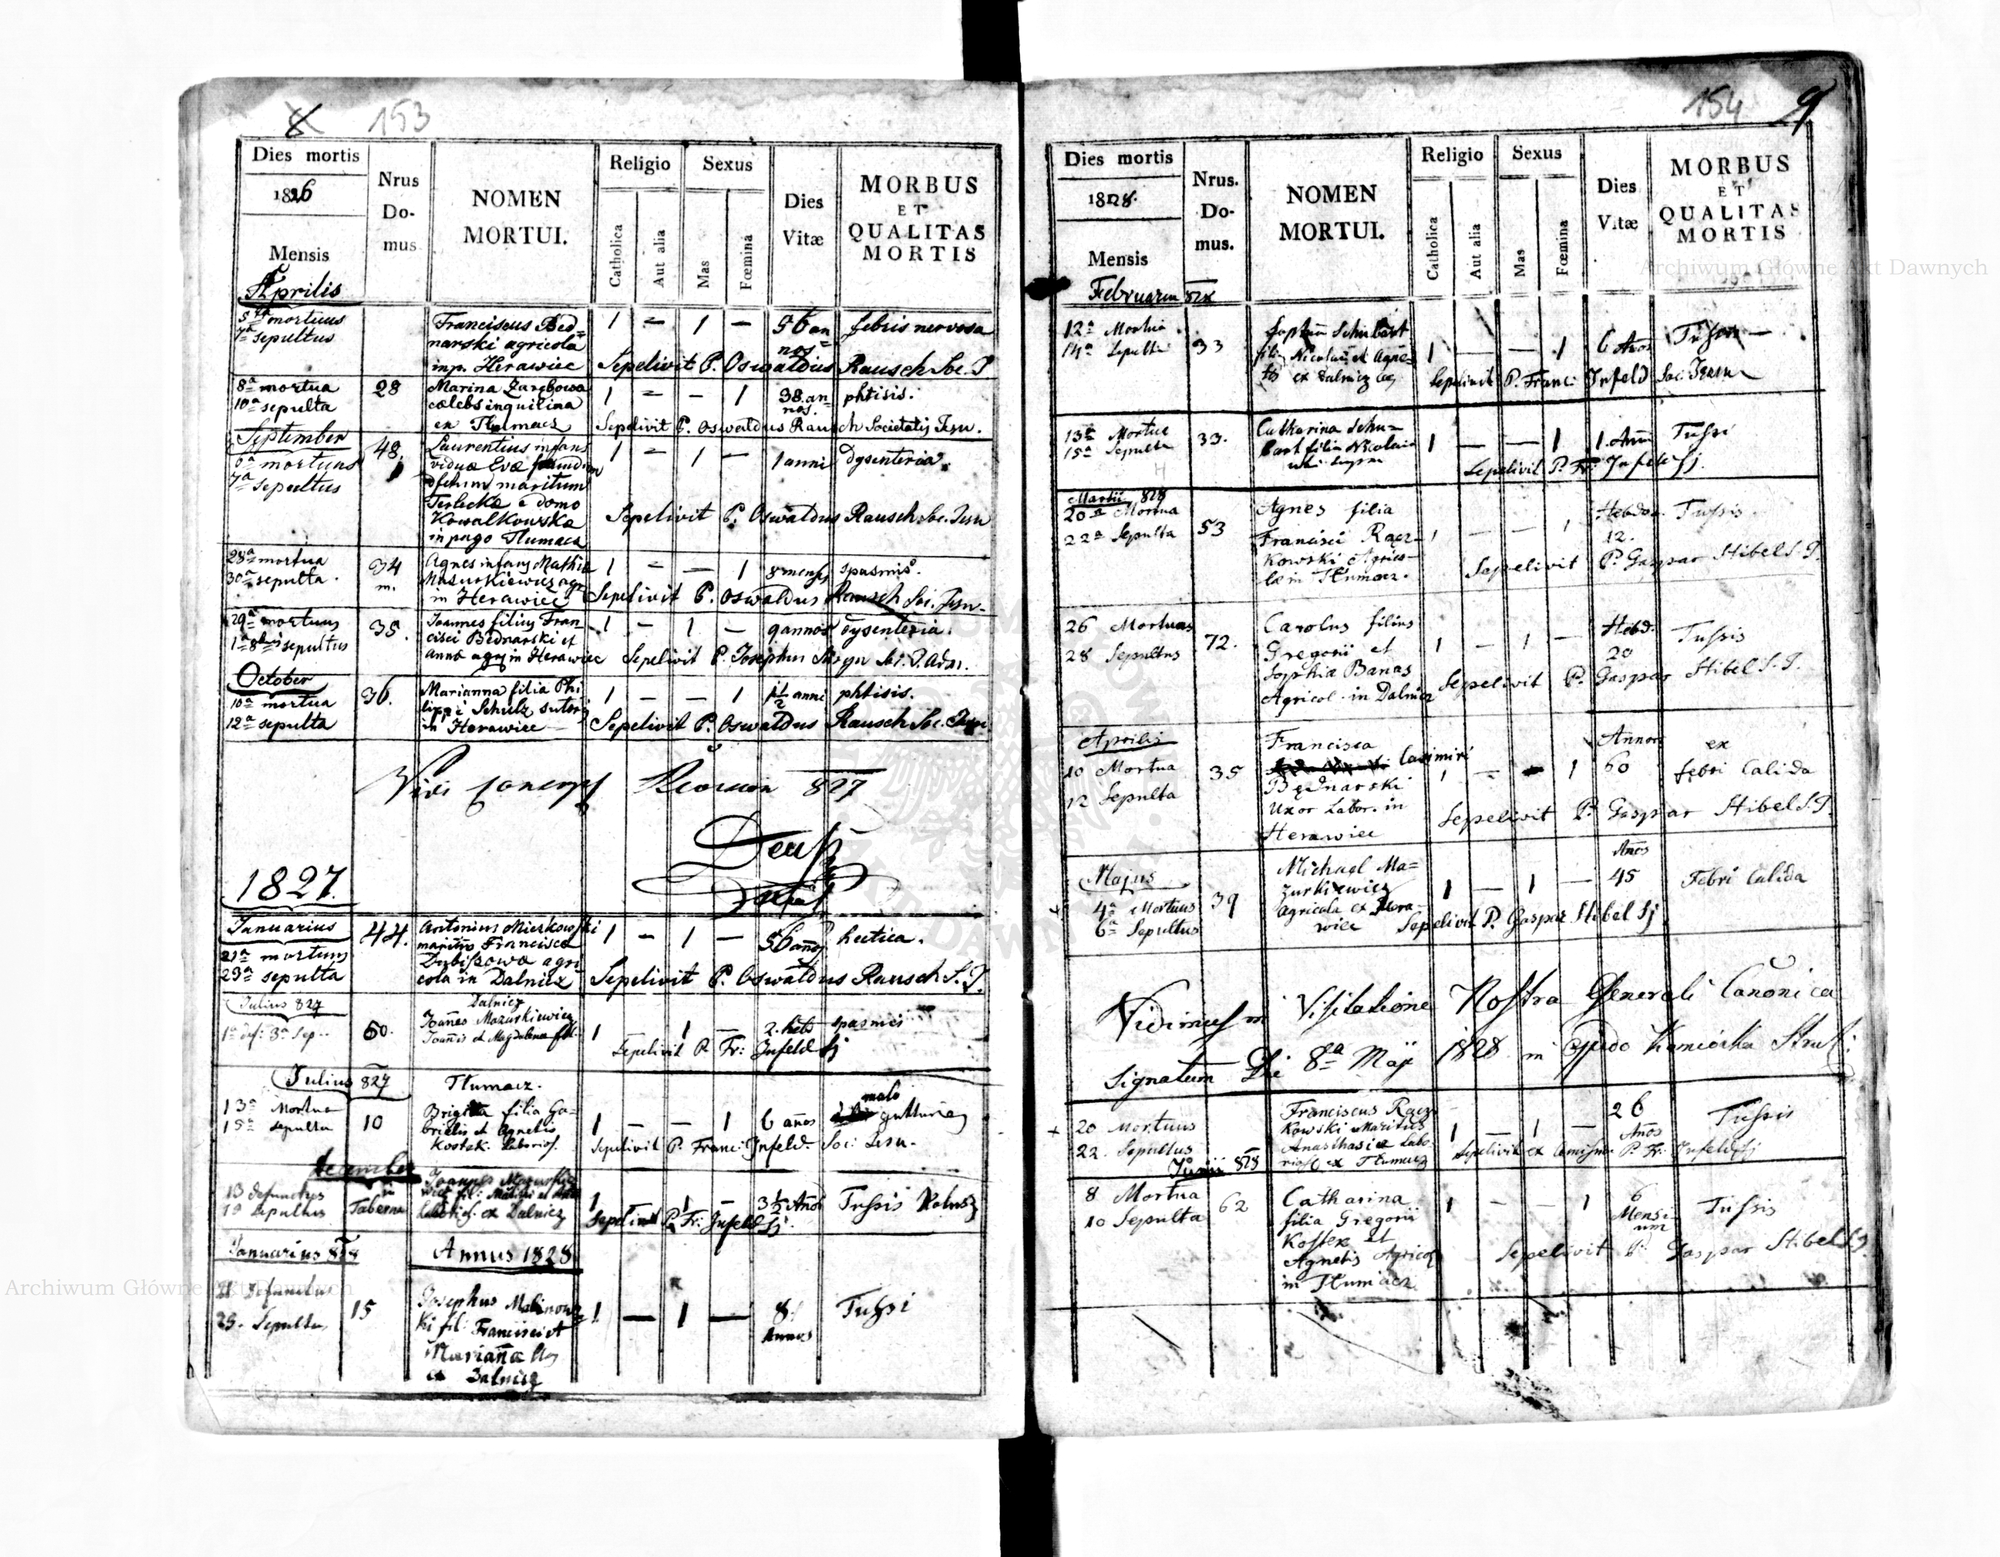 8
153
Dies mortis
1826
Mensis
Nrus
Do-
mus
NOMEN
MORTUI.
Religio
Catholica
Aut alia
Sexus
Mas
Fœmina
Dies
Vitæ
MORBUS
ET
QUALITAS
MORTIS
Aprilis
5ta mortuus
7a sepultus
Franciscus Bed=
narski agricola
inp. Herawiec
1 — 1 —
56 an
nos=
febris nervosa
Sepelivit P. Oswaldus Rausch Soc. J
8a mortua
10a sepulta
28
Marina Zarębowa
cælebs inquilina
ex Tłumacz
1 — — 1
38. an
nos.
phtisis.
Sepelivit P. Oswaldus Rausch Societatis Jesu.
September
6a mortuus
7a sepultus
48.
Laurentius infans
viduæ Evæ
maritum
Terlecka e domo
Kowalkowska
in pago Tłumacz
1 — 1 —
1 anni
dysenteria.
Sepelivit P. Oswaldus Rausch Soc. Jesu
28a mortua
30a sepulta.
34
m.
Agnes infans Mathia
Mazurkiewicz agr
in Herawiec
1 — — 1
8 mens
spasmis.
Sepelivit P. Oswaldus Rausch Soc. Jesu.
29a mortuus
sepultus
35.
Joannes filius Fran-
cisci Bednarski et
anna agr in Herawiec
1 — 1 —
9 annos
dysenteria.
Sepelivit P. Josephus
October
10a mortua
12a sepulta
36.
Marianna filia Phi
lippi Schulz sutoris
in Herawiec
1 — — 1
1 1/2 anni
phtisis.
Sepelivit P. Oswaldus Rausch Soc. Jesu.
827
1827.
Januarius
21a mortuus
23a sepulta
44.
Antonius Mierkowski
maritus Francisca
Dubissowa agri
cola in Dalnicz
1 — 1 —
56 annos
hectica.
Sepelivit P. Oswaldus Rausch S. J.
Julius 827
1a def: 3a Sep..
60.
Dalnicz
Joañes Mazurkiewicz
Joañis et Magdalena fil.
1 — 1 —
spasmis
Sepelivit P. Fr: Infeld Sj
Julius 827
13a Mortua
15a sepulta
10
Tłumacz.
Brigitta filia Ga-
brielis et Agnetis
Kostek. Laborios.
1 — — 1
6 años
malo
gutturis
Sepelivit P. Franc: Infeld. Soc: Jesu.
December
13 defunctus
sepultus
in
Taberna
Joannes Mazurkie
ex Dalnicz
1 — 1 —
3 1/2 Años
Tussis
Sepelivit P. Fr: Infeld Sj.
Januarius 828
Annus 1828
Defunctus
Sepultus
15
Josephus Malinows=
ki fil: Francisci et
Mariaña
ex Dalnicz
1 — 1 —
8
Annus
Tussi
154
9
Dies mortis
1828.
Mensis
Nrus.
Do-
mus.
NOMEN
MORTUI.
Religio
Catholica
Aut alia
Sexus
Mas
Fœmina
Dies
Vitæ
MORBUS
ET
QUALITAS
MORTIS
Februarius 828
12a Mortua
14a Sepulta
33
Schubart
filia Nicolai et Agne-
tis ex Dalnicz
1 — — 1
6 Años
Tussi —
Sepelivit P. Franc: Infeld Soc: Jesu
13a Mortua
15a Sepulta
33.
Catharina Schu=
bart filia Nicolai
uti supra
1 — — 1
1 Anni
Tussi
Sepelivit P. Fr: Infeld Sj.
Martii 828
20a Mortua
22a Sepulta
53
Agnes filia
Francisci Racz-
kowski Agrico-
læ in Tłumacz.
1 — — 1
Hebdo.
12.
Tussis
Sepelivit P. Gaspar Stibel S. J.
26 Mortuus
28 Sepultus
72.
Carolus filius
Gregorii et
Sophia Banas
Agricol. in Dalnicz
1 — 1 —
Hebd.
20
Tussis
Sepelivit P. Gaspar Stibel S. J.
Aprilis
10 Mortua
12 Sepulta
35
Francisca
Casimiri
Bednarski
Uxor Labor. in
Herawiec
1 — — 1
Annor
60
ex
febri Calida
Sepelivit P. Gaspar Stibel S. J.
Majus
4a Mortuus
6a Sepultus
39
Michael Ma=
zurkiewicz
Agricola ex Hera-
wiec
1 — 1 —
Años
45
Febri Calida
Sepelivit P. Gaspar Stibel Sj
Vidimus in Visitatione Nostra Generali Cañonica
Signatum Die 8a Maji 1828 in oppido
20 Mortuus
22. Sepultus
Franciscus Racz
kowski Maritus
Anasthasiæ Labo-
rios. ex Tłumacz
1 — 1 —
26
Años
Tussis
Sepelivit P. Fr: Infeld Sj
Junii 828
8 Mortua
10 Sepulta
62
Catharina
filia Gregorii
Kostek et
Agnetis Agricol
in Tłumacz
1 — — 1
6
Mensi-
um
Tussis
Sepelivit P. Gaspar Stibel S. J.
Archiwum Główne Akt Dawnych
Archiwum Główne Akt Dawnych